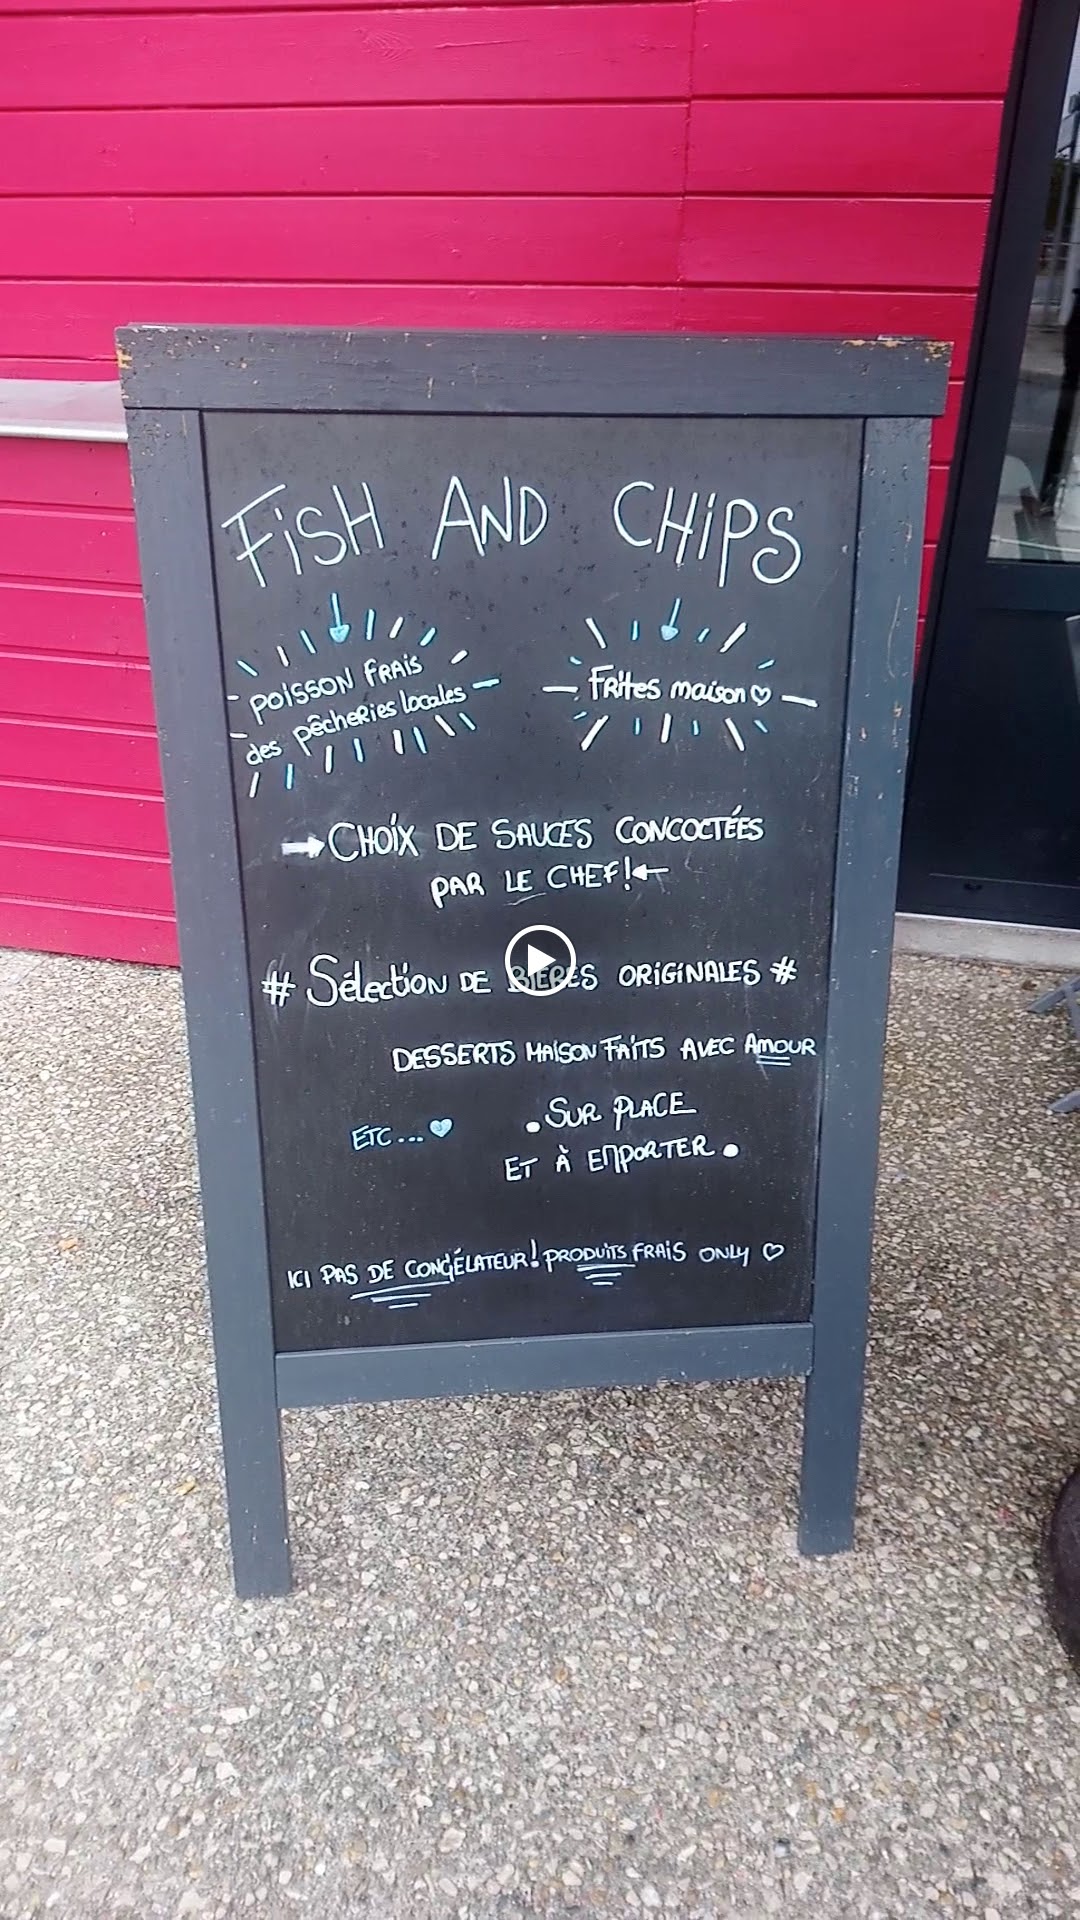 FiSH AND CHiPS
POISSON FRAIS
des pêcheries locales
Frites maison ♡
→ CHOIX DE SAUCES CONCOCTÉES
PAR LE CHEF! ←
# Sélection DE BIÈRES ORIGINALES #
DESSERTS MAISON FAITS AVEC AMOUR
ETC... ♥
. SUR PLACE
ET À EMPORTER .
ICI PAS DE CONGÉLATEUR! PRODUITS FRAIS ONLY ♡